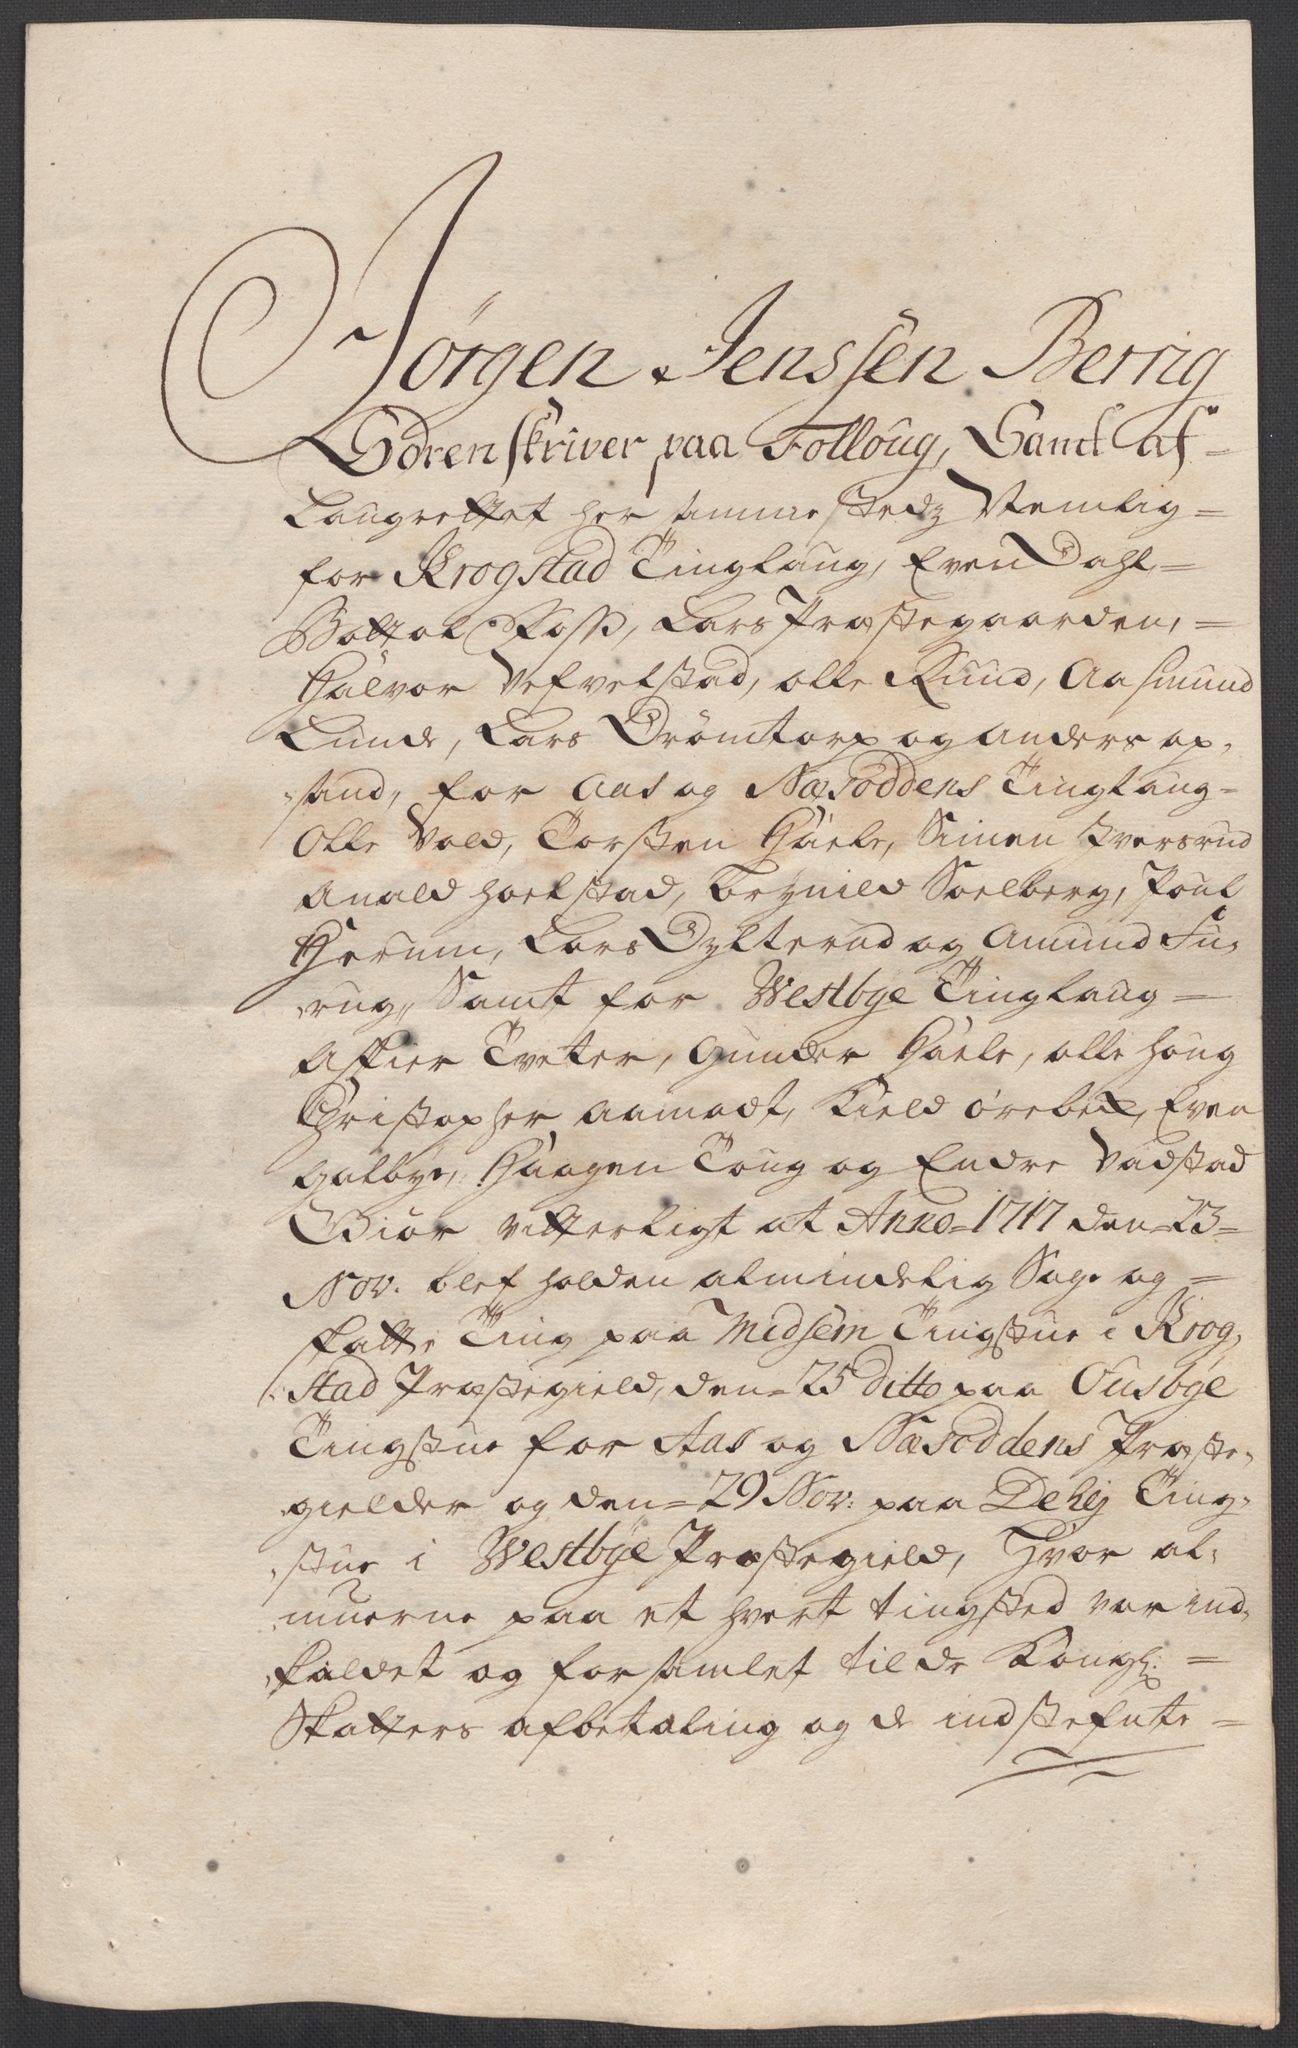 Jørgen Jenssen Berrig
Sorenskriver paa Folloug, Samt af-
Laugrettet her sammestedz Nemlig=
for Krogstad Tinglaug, Even Dahl=
Bottol Foss, Lars Præstegaarden,=
Halvor Vefvelstad, olle Ruud, Aasmund
Lunde, Lars Drømtorp og Anders op,
,sand, for Aas og Næsoddens Tinglaug-
Olle Vold, Torsten Haele, Simen Iversrud
Anald Holstad, Brynild Solberg, Poul
Gierum, Lars Dylterud og Amund Fu,
,rug, Samt for Westbye Tinglaug=
Asser Tveter, Gunder Haele, olle Houg
Christopher Aamodt, Kield Ørebeck, Even
Galbye, Haagen Toug og Endre Vadstad
Giør vitterligt at Anno=1717 den=23=
Nov: blef holden almindelig Sage og=
Skatte Ting paa Midsem Tingstue i Krog,
,stad Præstegield, den=25 ditto paa Ousbye
Tingstue for Aas og Næsoddens Præste,
,gielder og den=29 Nov: paa Dehlj Ting,
,stue i Westbye Præstegield, Hvor al,
,muerne paa et hvert tingsted var ind,
,kaldet og forsamlet til de Kongl:=
Skatters afbetaling og de indstefnte=